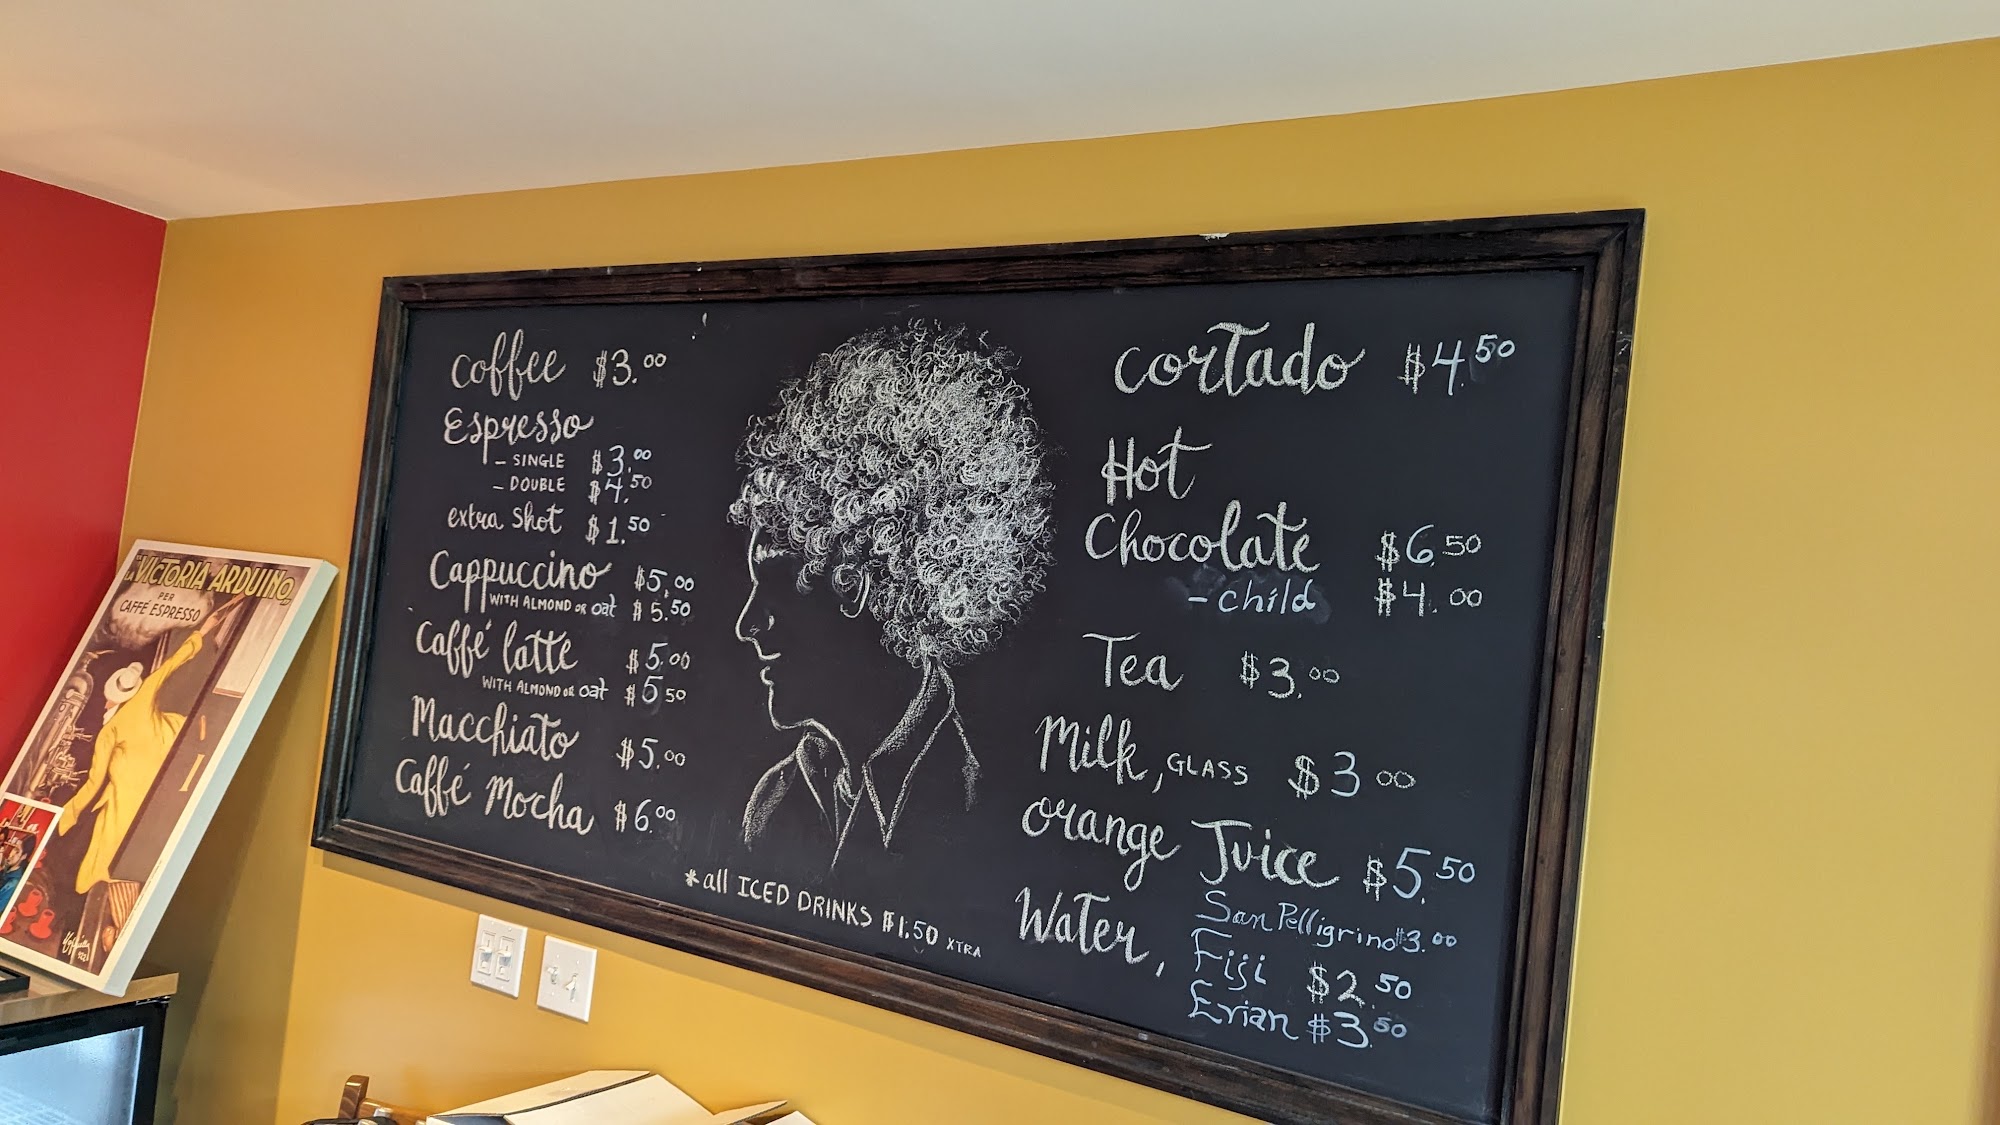 LA "VICTORIA ARDUINO"
PER
CAFFÈ ESPRESSO
coffee $3.00
Espresso
- SINGLE $3.00
- DOUBLE $4.50
extra shot $1.50
Cappuccino $5.00
WITH ALMOND OR oat $5.50
Caffé latte $5.00
WITH ALMOND OR oat $5.50
Macchiato $5.00
Caffé Mocha $6.00
*all ICED DRINKS $1.50 XTRA
cortado $4.50
Hot
Chocolate $6.50
- child $4.00
Tea $3.00
Milk, GLASS $3.00
orange Juice $5.50
Water, San Pelligrino $3.00
Fiji $2.50
Evian $3.50